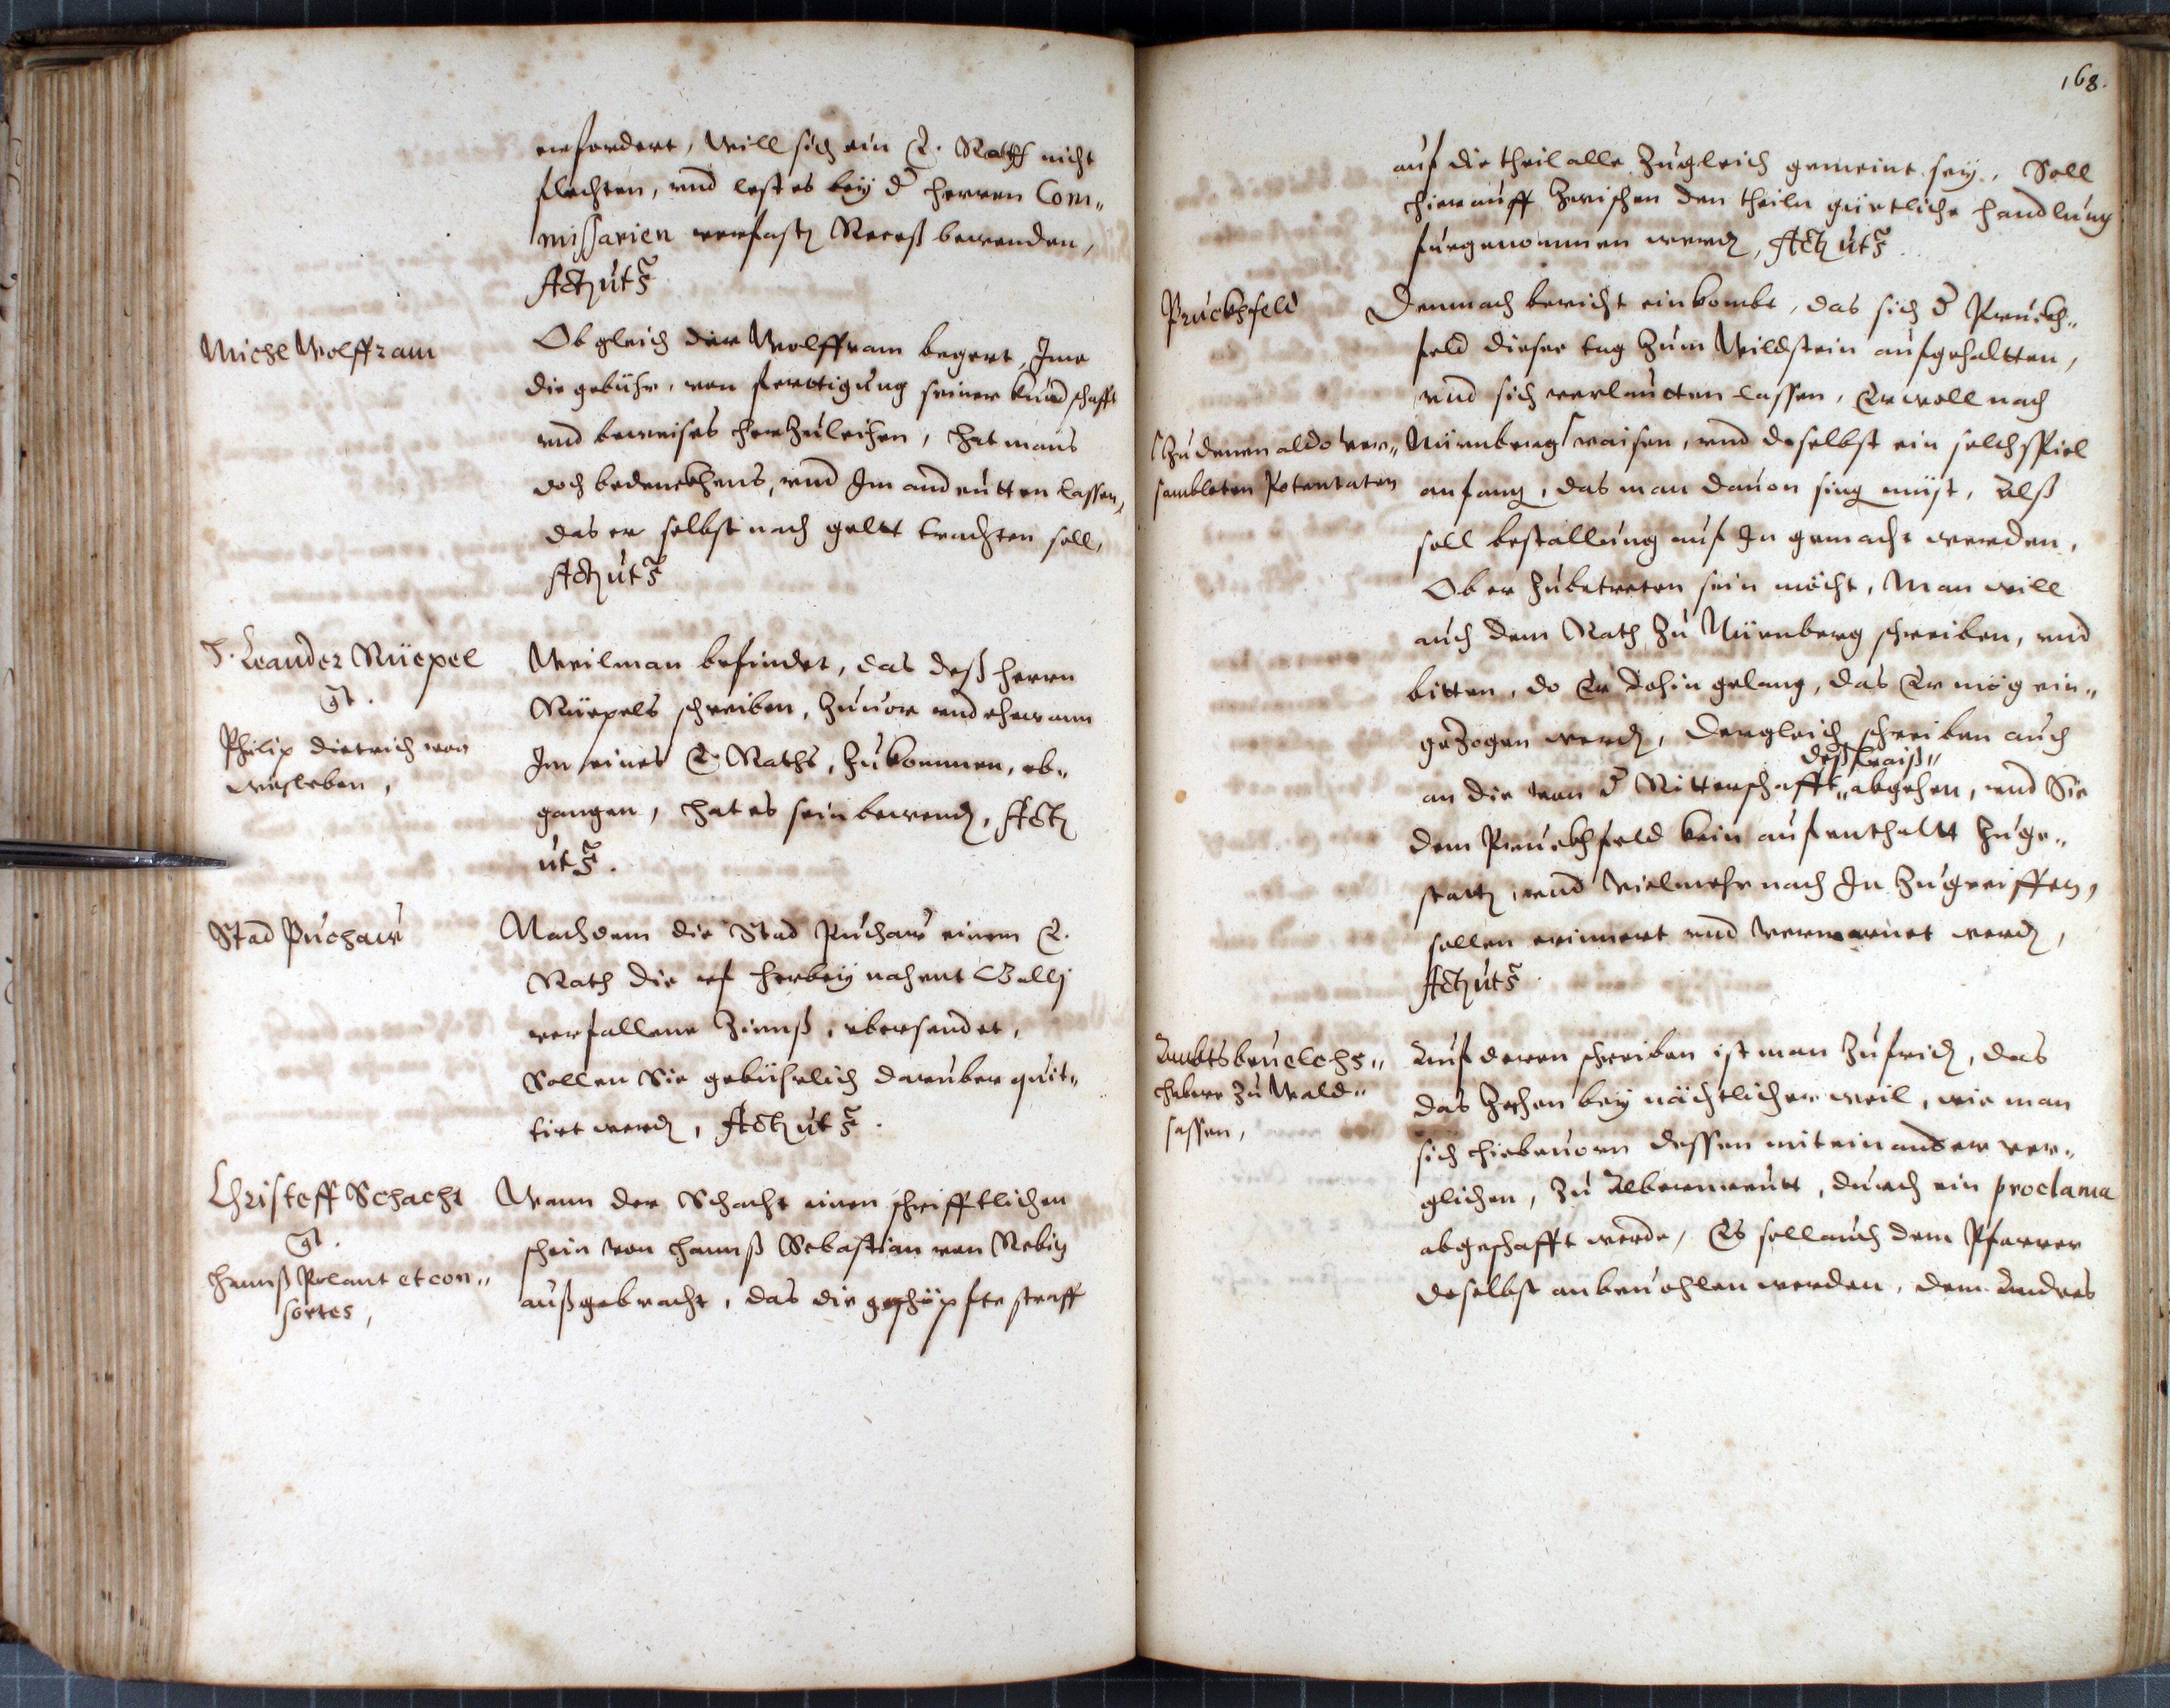 erfordert, will sich ein E. Rath nicht
flechten, und lest es bey d' herren Com„
missarien verfasten Recess bewenden,
Act. uts.
Michl Wolffram
Ob gleich der Wolffram begert, Ime
die gebühr, von fertigung seiner kundschafft
und beweises herzuleihen, hat mans
doch bedenckhens, und Im andeutten lassen,
das er selbst nach gelt trachten soll,
Act. uts.
D. Leander Rüepel
Philip Dietrich von
Weilman befindet, das deß herrn
Rüepels schreiben, zuuor und ehe wann
Im eines E. Raths, zukommen, ab„
gangen, hat es sein bewend, Act.
uts.
Stad Puchaw
Nachdem die Stad Puchaw einem E.
Rath die uf herbey nahent Gallj
verfallene Zinnß, ubersendet,
Sollen Sie gebührlich daruber quit„
tirt werd, Act. uts.
Christoff Schacht
Hannß Polant et con„
sortes,
Wann der Schacht einen schrifftlichen
schein von Hannß Sebastian von
außgebracht, das die geschöpfte straff
168.
auf die theil alle zugleich gemeint sey, Soll
hierauff zwischen den theiln güetliche handlung
fürgenommen werd, Act. uts.
Pruckhfeld
Demnach bericht einkombt, das sich d' Pruckh„
feld dieser tag zum Wildstein aufgehaltten,
und sich verlautten lassen, Er woll nach
zu denen aldo ver„
sambleten Potentaten
Nürmberg raisen, und doselbst ein solch spiel
anfang, das man dauon sing müst, Alß
soll bestallung auf In gemacht werden,
Ob er zubetreten sein möcht, Man will
auch dem Rath zu Nürmberg schreiben, und
bitten, do Er dohin gelang, das Er mög ein„
gezogen werd, Dergleich schreiben auch
deß kraiß„
an die von d' Ritterschafft„ abgehen, und Sie
dem Pruckhfeld kein aufenthaltt zuge„
statt, und vielmehr nach In zugreiffen,
sollen erinnert und verwarnet werd,
Act. uts.
Ambtsbeuelchs„
haber zu Wald„
sassen,
Auf deren schreiben ist man zufrid, das
das Zechen bey nächtlicher weil, wie man
sich hiebeuorn dessen miteinander ver„
glichen, zu Albernreutt, durch ein proclama
abgeschafft werde, Es soll auch dem Pfarrer
doselbst anbeuohlen werden, dem Andres